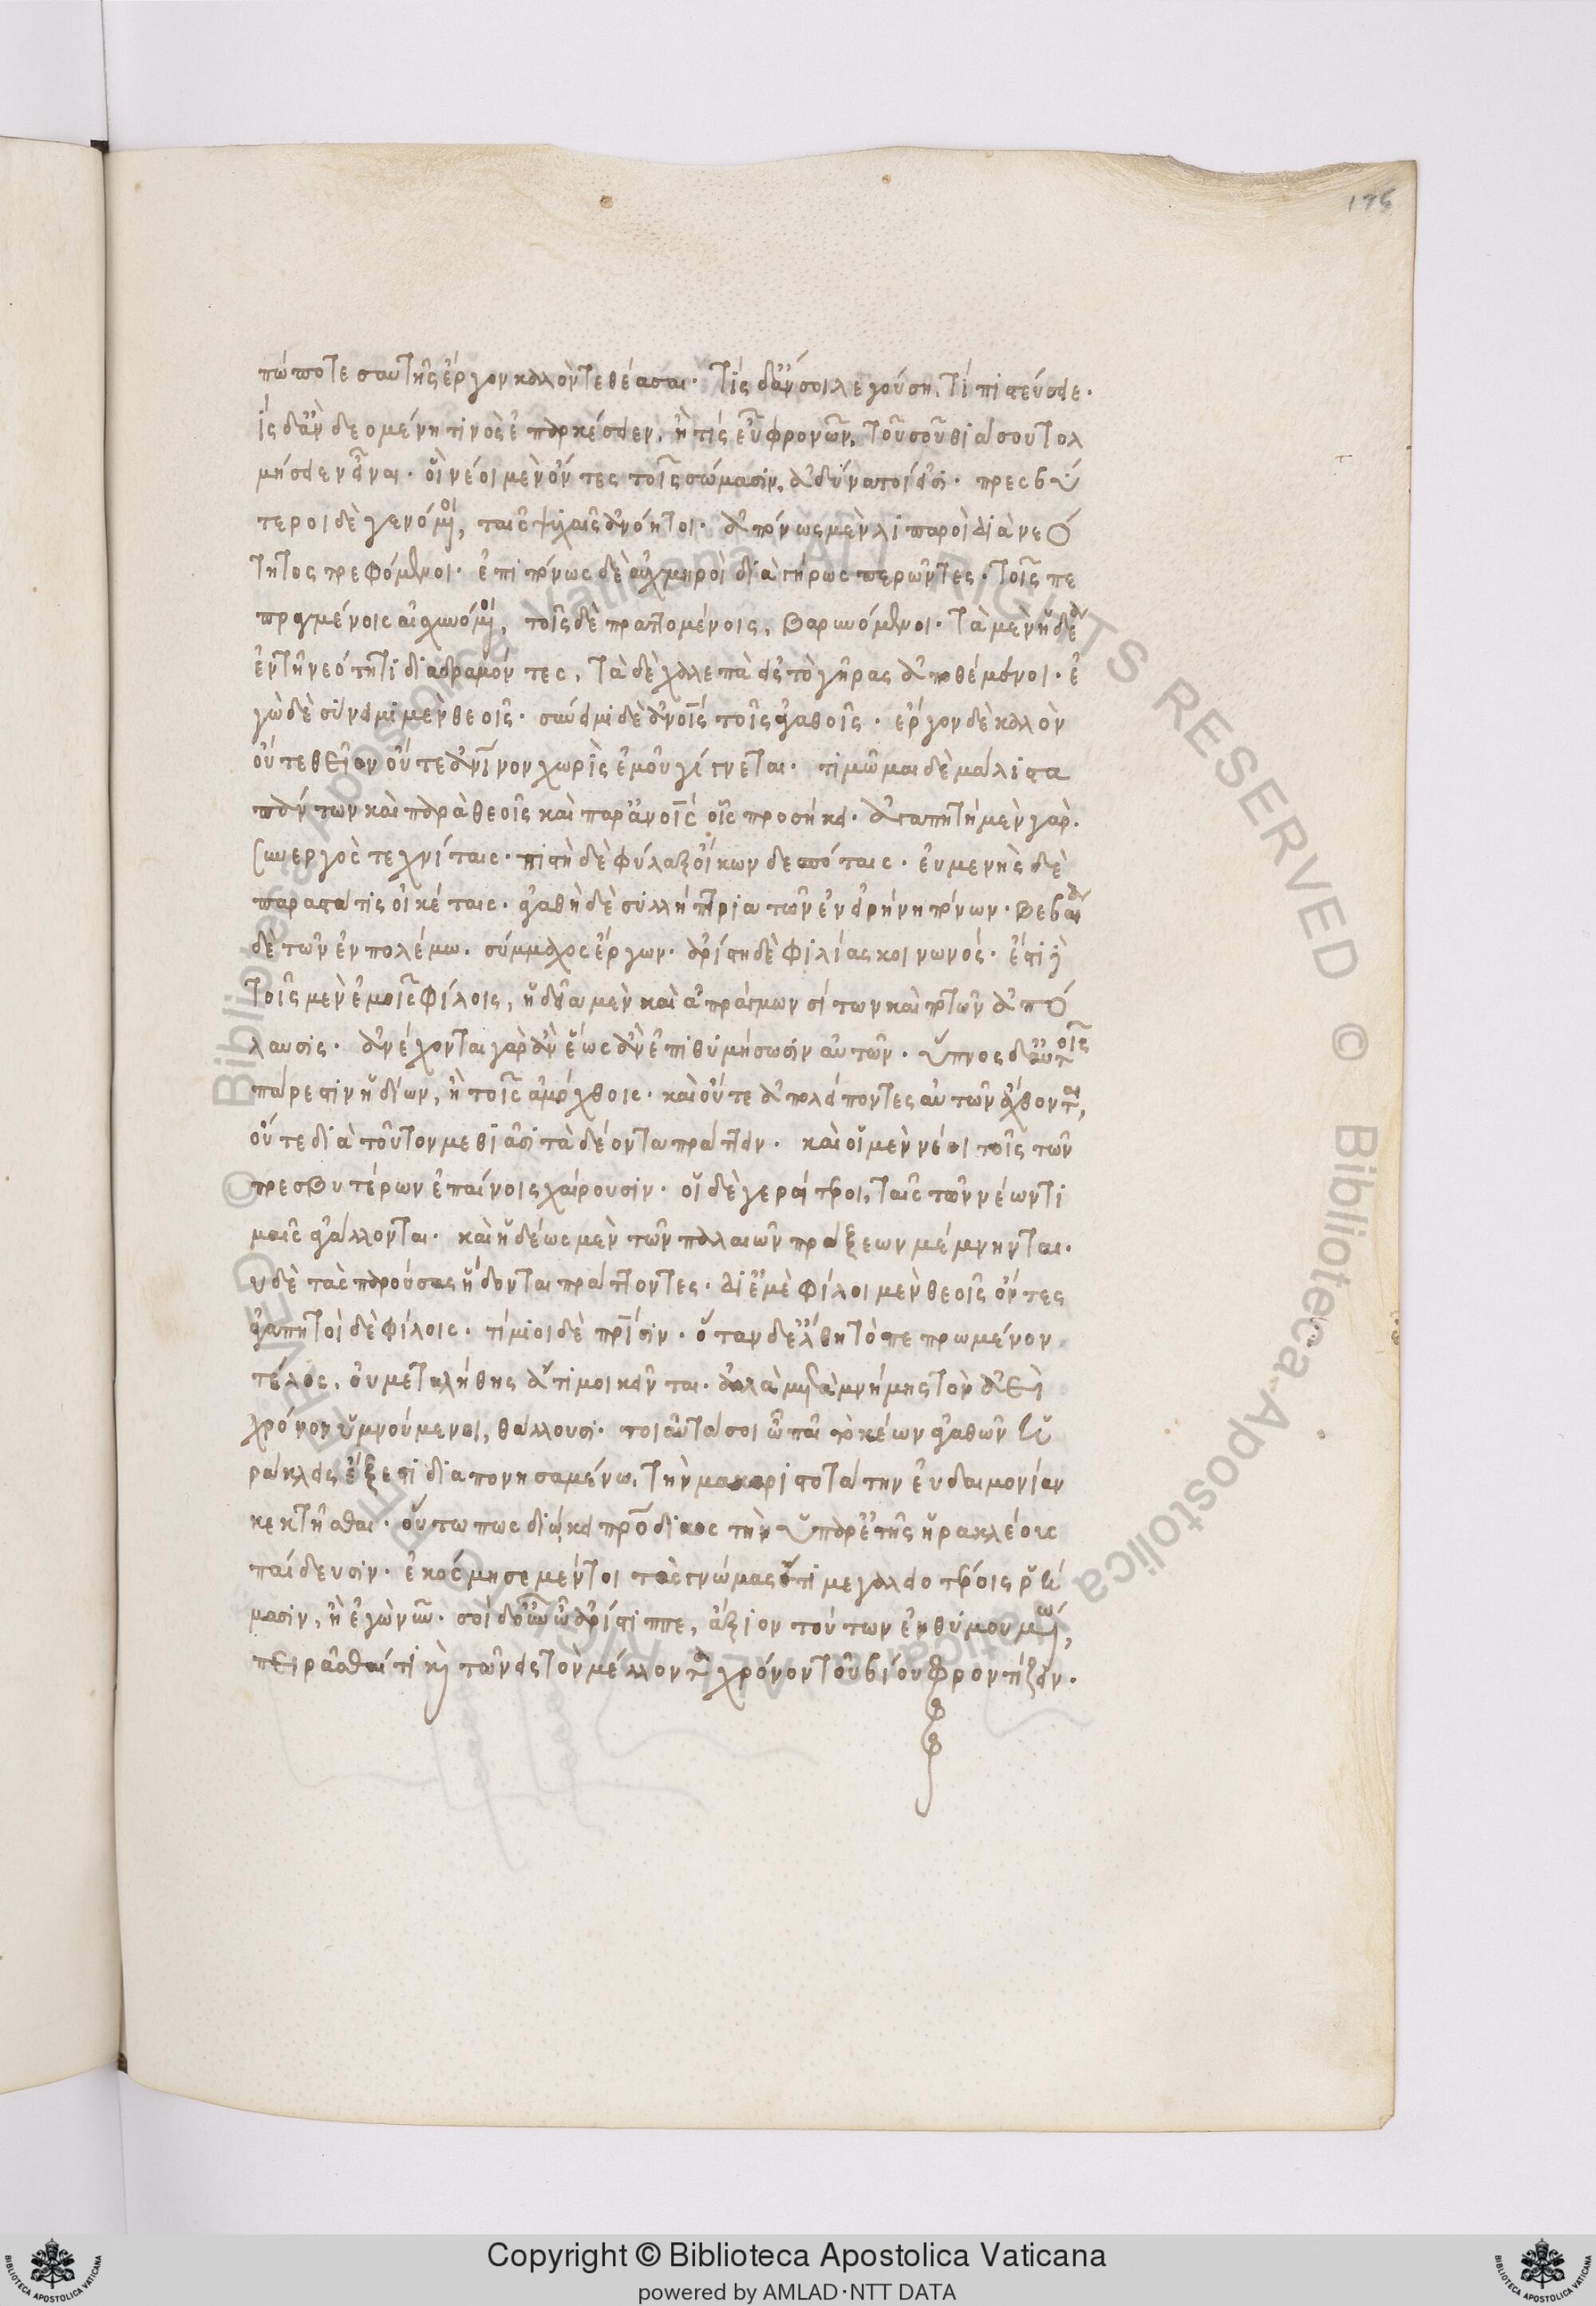 175
πώποτε σαυτῆς ἔργον καλὸν τεθέασαι· τίς δἄν σοι λεγούσῃ τί πιστεύσειε·
ίς δἂν δεομένῃ τινὸς ἐπαρκέσειεν, ἢ τίς εὖ φρονῶν, τοῦ σοῦ θιάσου τολ
μήσειεν εἶναι· οἳ νέοι μὲν ὄντες τοῖς σώμασιν, ἀδύνατοί εἰσι· πρεσβύ
τεροι δὲ γενόμενοι, ταῖς ψυχαῖς ἀνόητοι· ἀπόνως μὲν λιπαροὶ διὰ νεό
τητος τρεφόμενοι· ἐπιπόνως δὲ αὐχμηροὶ διὰ γήρως περῶντες· τοῖς πε
πραγμένοις αἰσχυνόμενοι, τοῖς δὲ πραττομένοις, βαρυνόμενοι· τὰ μὲν ἡδέα
ἐν τῇ νεότητι διαδραμόντες, τὰ δὲ χαλεπὰ εἰς τὸ γῆρας ἀποθέμενοι· ἐ
γὼ δὲ σύνειμι μὲν θεοῖς· σύνειμι δὲ ἀνοῖς τοῖς ἀγαθοῖς· ἔργον δὲ καλὸν
οὔτε θεῖον οὔτε ἀνῖνον χωρὶς ἐμοῦ γίγνεται· τιμῶμαι δὲ μάλιστα
πάντων καὶ παρὰ θεοῖς καὶ παρἀνοῖς οἷς προσήκει· ἀγαπητὴ μὲν γὰρ·
συνεργὸς τεχνίταις· πιστὴ δὲ φύλαξ οἴκων δεσπόταις· εὐμενὴς δὲ
παραστάτις οἰκέταις· ἀγαθὴ δὲ συλλήπτρια τῶν ἐν εἰρήνῃ πόνων· βεβαία
δὲ τῶν ἐν πολέμῳ· σύμμαχος ἔργων· ἀρίστη δὲ φιλίας κοινωνός· ἔστι δὲ
τοῖς μὲν ἐμοῖς φίλοις, ἡδεῖα μὲν καὶ ἀπράγμων σίτων καὶ ποτῶν ἀπό
λαυσις· ἀνέχονται γὰρ ἂν ἕως ἂν ἐπιθυμήσωσιν αὐτῶν· ὕπνος δαὐτοῖς
πάρεστιν ἡδίων, ἢ τοῖς ἀμόχθοις· καὶ οὔτε ἀπολείποντες αὐτὸν ἄχθονται,
οὔτε διὰ τοῦτον μεθιᾶσι τὰ δέοντα πράττειν· καὶ οἱ μὲν νέοι τοῖς τῶν
πρεσβυτέρων ἐπαίνοις χαίρουσιν· οἱ δὲ γεραίτεροι, ταῖς τῶν νέων τι
μαῖς ἀγάλλονται· καὶ ἡδέως μὲν τῶν παλαιῶν πράξεων μέμνηνται·
υ δὲ τὰς παρούσας ἥδονται πράττοντες· διἐμὲ φίλοι μὲν θεοῖς ὄντες
ἀγαπητοὶ δὲ φίλοις· τίμιοι δὲ πρίσιν· ὅταν δἔλθῃ τὸ πεπρωμένον
τέλος, οὐ μετὰ λήθης ἄτιμοι κεῖνται· ἀλλὰ μετὰ μνήμης τὸν ἀεὶ
χρόνον ὑμνούμενοι, θάλλουσι· τοιαῦτά σοι ὦ παῖ τοκέων ἀγαθῶν ἡ
ράκλεις ἔξεστι διαπονησαμένῳ, τὴν μακαριστοτάτην εὐδαιμονίαν
κεκτῆσθαι· οὕτω πως διώκει πρόδικος τὴν ὑπἀρετῆς ἡρακλέους
παίδευσιν· ἐκόσμησε μέντοι τὰς γνώμας ἔτι μεγαλειοτέροις ῥή
μασιν, ἢ ἐγὼ νῦν· σοὶ δοὖν ὦ ἀρίστιππε, ἄξιον τούτων ἐνθυμουμένῳ,
πειρᾶσθαί τι καὶ τῶν εἰς τὸν μέλλοντα χρόνον τοῦ βίου φροντίζειν·
Copyright © Biblioteca Apostolica Vaticana
powered by AMLAD·NTT DATA